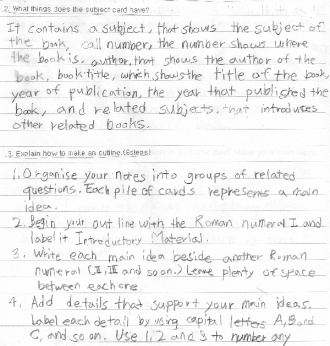 2. What things does the subject card have?
It contains a subject, that shows the subject of
the book, call number, the number shows where
the book is, author, that shows the author of the
book, book title, which shows the title of the book,
year of publication, the year that published the
book, and related subjects, that introduces
other related books.
3. Explain how to make an outline. (6 steps)
1. Organise your notes into groups of related
questions. Each pile of cards represents a main
idea.
2. Begin your out line with the Roman numeral I and
label it Introductory Material.
3. Write each main idea beside another Roman
numeral (II, III and so on.) Leave plenty of space
between each one.
4. Add details that support your main ideas.
Label each detail by using capital letters A, B, and
C, and so on. Use 1, 2 and 3 to number any